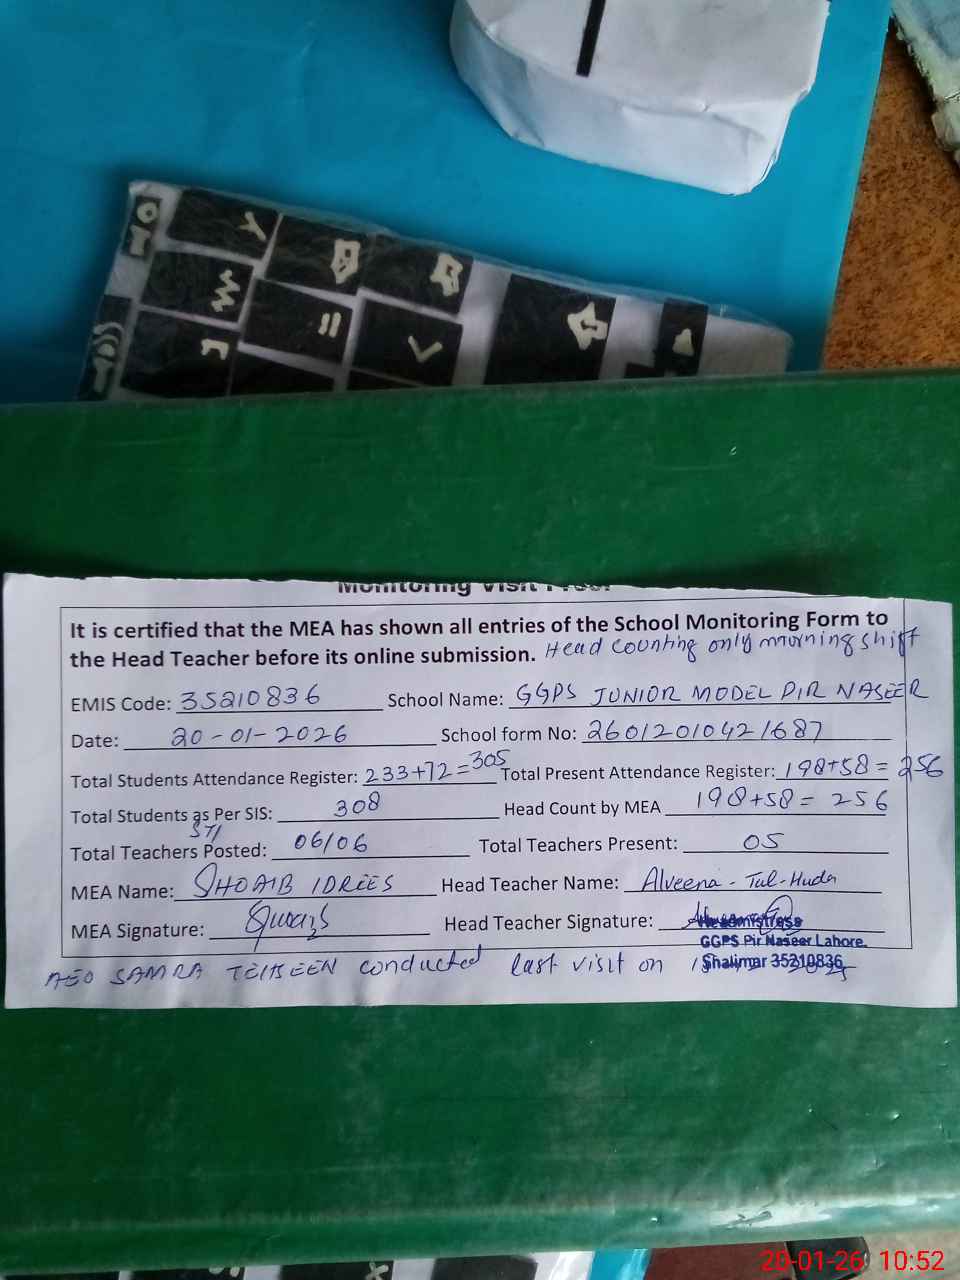 Monitoring Visit Proof
It is certified that the MEA has shown all entries of the School Monitoring Form to
the Head Teacher before its online submission. Head counting only morning shift
EMIS Code: 35210836 School Name: GGPS JUNIOR MODEL PIR NASEER
Date: 20-01-2026 School form No: 26012010421687
Total Students Attendance Register: 233+72=305 Total Present Attendance Register: 198+58=256
Total Students as Per SIS: 308 Head Count by MEA 198+58=256
STI
Total Teachers Posted: 06/06 Total Teachers Present: 05
MEA Name: SHOAIB IDREES Head Teacher Name: Alveena-Tul-Huda
MEA Signature: Head Teacher Signature:
Headmistress
GGPS Pir Naseer Lahore.
Shalimar 35210836
AEO SAMRA conducted last visit on
20-01-26 10:52